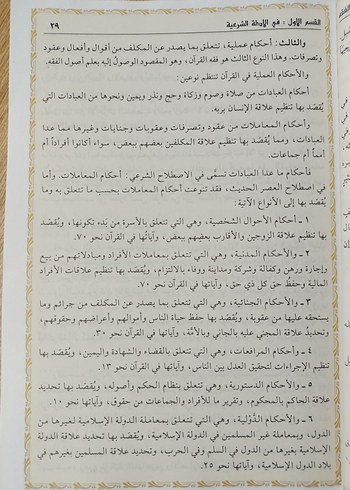 القسم الأول : في الأدلة الشرعية ٢٩
والثالث : أحكام عملية، تتعلق بما يصدر عن المكلف من أقوال وأفعال وعقود
وتصرفات. وهذا النوع الثالث هو فقه القرآن، وهو المقصود الوصول إليه بعلم أصول الفقه.
والأحكام العملية في القرآن تنتظم نوعين :
أحكام العبادات من صلاة وصوم وزكاة وحج ونذر ويمين ونحوها من العبادات التي
يُقصَد بها تنظيم علاقة الإنسان بربه.
وأحكام المعاملات من عقود وتصرفات وعقوبات وجنايات وغيرها مما عدا
العبادات، ومما يُقصَد بها تنظيم علاقة المكلفين بعضهم ببعض، سواء أكانوا أفراداً أم
أمماً أم جماعات.
فأحكام ما عدا العبادات تسمَّى في الاصطلاح الشرعي : أحكام المعاملات. وأما
في اصطلاح العصر الحديث، فقد تنوعت أحكام المعاملات بحسب ما تتعلق به وما
يُقصَد بها إلى الأنواع الآتية :
١ ـ أحكام الأحوال الشخصية، وهي التي تتعلق بالأسرة من بَدء تكونها، ويُقصَد
بها تنظيم علاقة الزوجين والأقارب بعضِهم ببعض، وآياتُها في القرآن نحو ٧٠.
٢ ـ والأحكام المدنية، وهي التي تتعلق بمعاملات الأفراد ومبادلاتهم من بيع
وإجارة ورهن وكفالة وشركة ومداينة ووفاء بالالتزام، ويُقصَد بها تنظيم علاقات الأفراد
المالية وحفظُ حق كل ذي حق، وآياتها في القرآن نحو ٧٠.
٣ ـ والأحكام الجنائية، وهي التي تتعلق بما يصدر عن المكلف من جرائم وما
يستحقه عليها من عقوبة، ويُقصَد بها حفظ حياة الناس وأموالهم وأعراضهم وحقوقهم،
وتحديدُ علاقة المجني عليه بالجاني وبالأمَّة، وآياتها في القرآن نحو ٣٠.
٤ ـ وأحكام المرافعات، وهي التي تتعلق بالقضاء والشهادة واليمين، ويُقصَد بها
تنظيم الإجراءات لتحقيق العدل بين الناس، وآياتها في القرآن نحو ١٣.
٥ ـ والأحكام الدستورية، وهي التي تتعلق بنظام الحكم وأصوله، ويُقصَد بها تحديد
علاقة الحاكم بالمحكوم، وتقرير ما للأفراد والجماعات من حقوق، وآياتها نحو ١٠.
٦ ـ والأحكام الدَّوْلية، وهي التي تتعلق بمعاملة الدولة الإسلامية لغيرها من
الدول، وبمعاملة غير المسلمين في الدولة الإسلامية، ويُقصَد بها تحديد علاقة الدولة
الإسلامية بغيرها من الدول في السلم وفي الحرب، وتحديد علاقة المسلمين بغيرهم في
بلاد الدول الإسلامية، وآياتها نحو ٢٥.